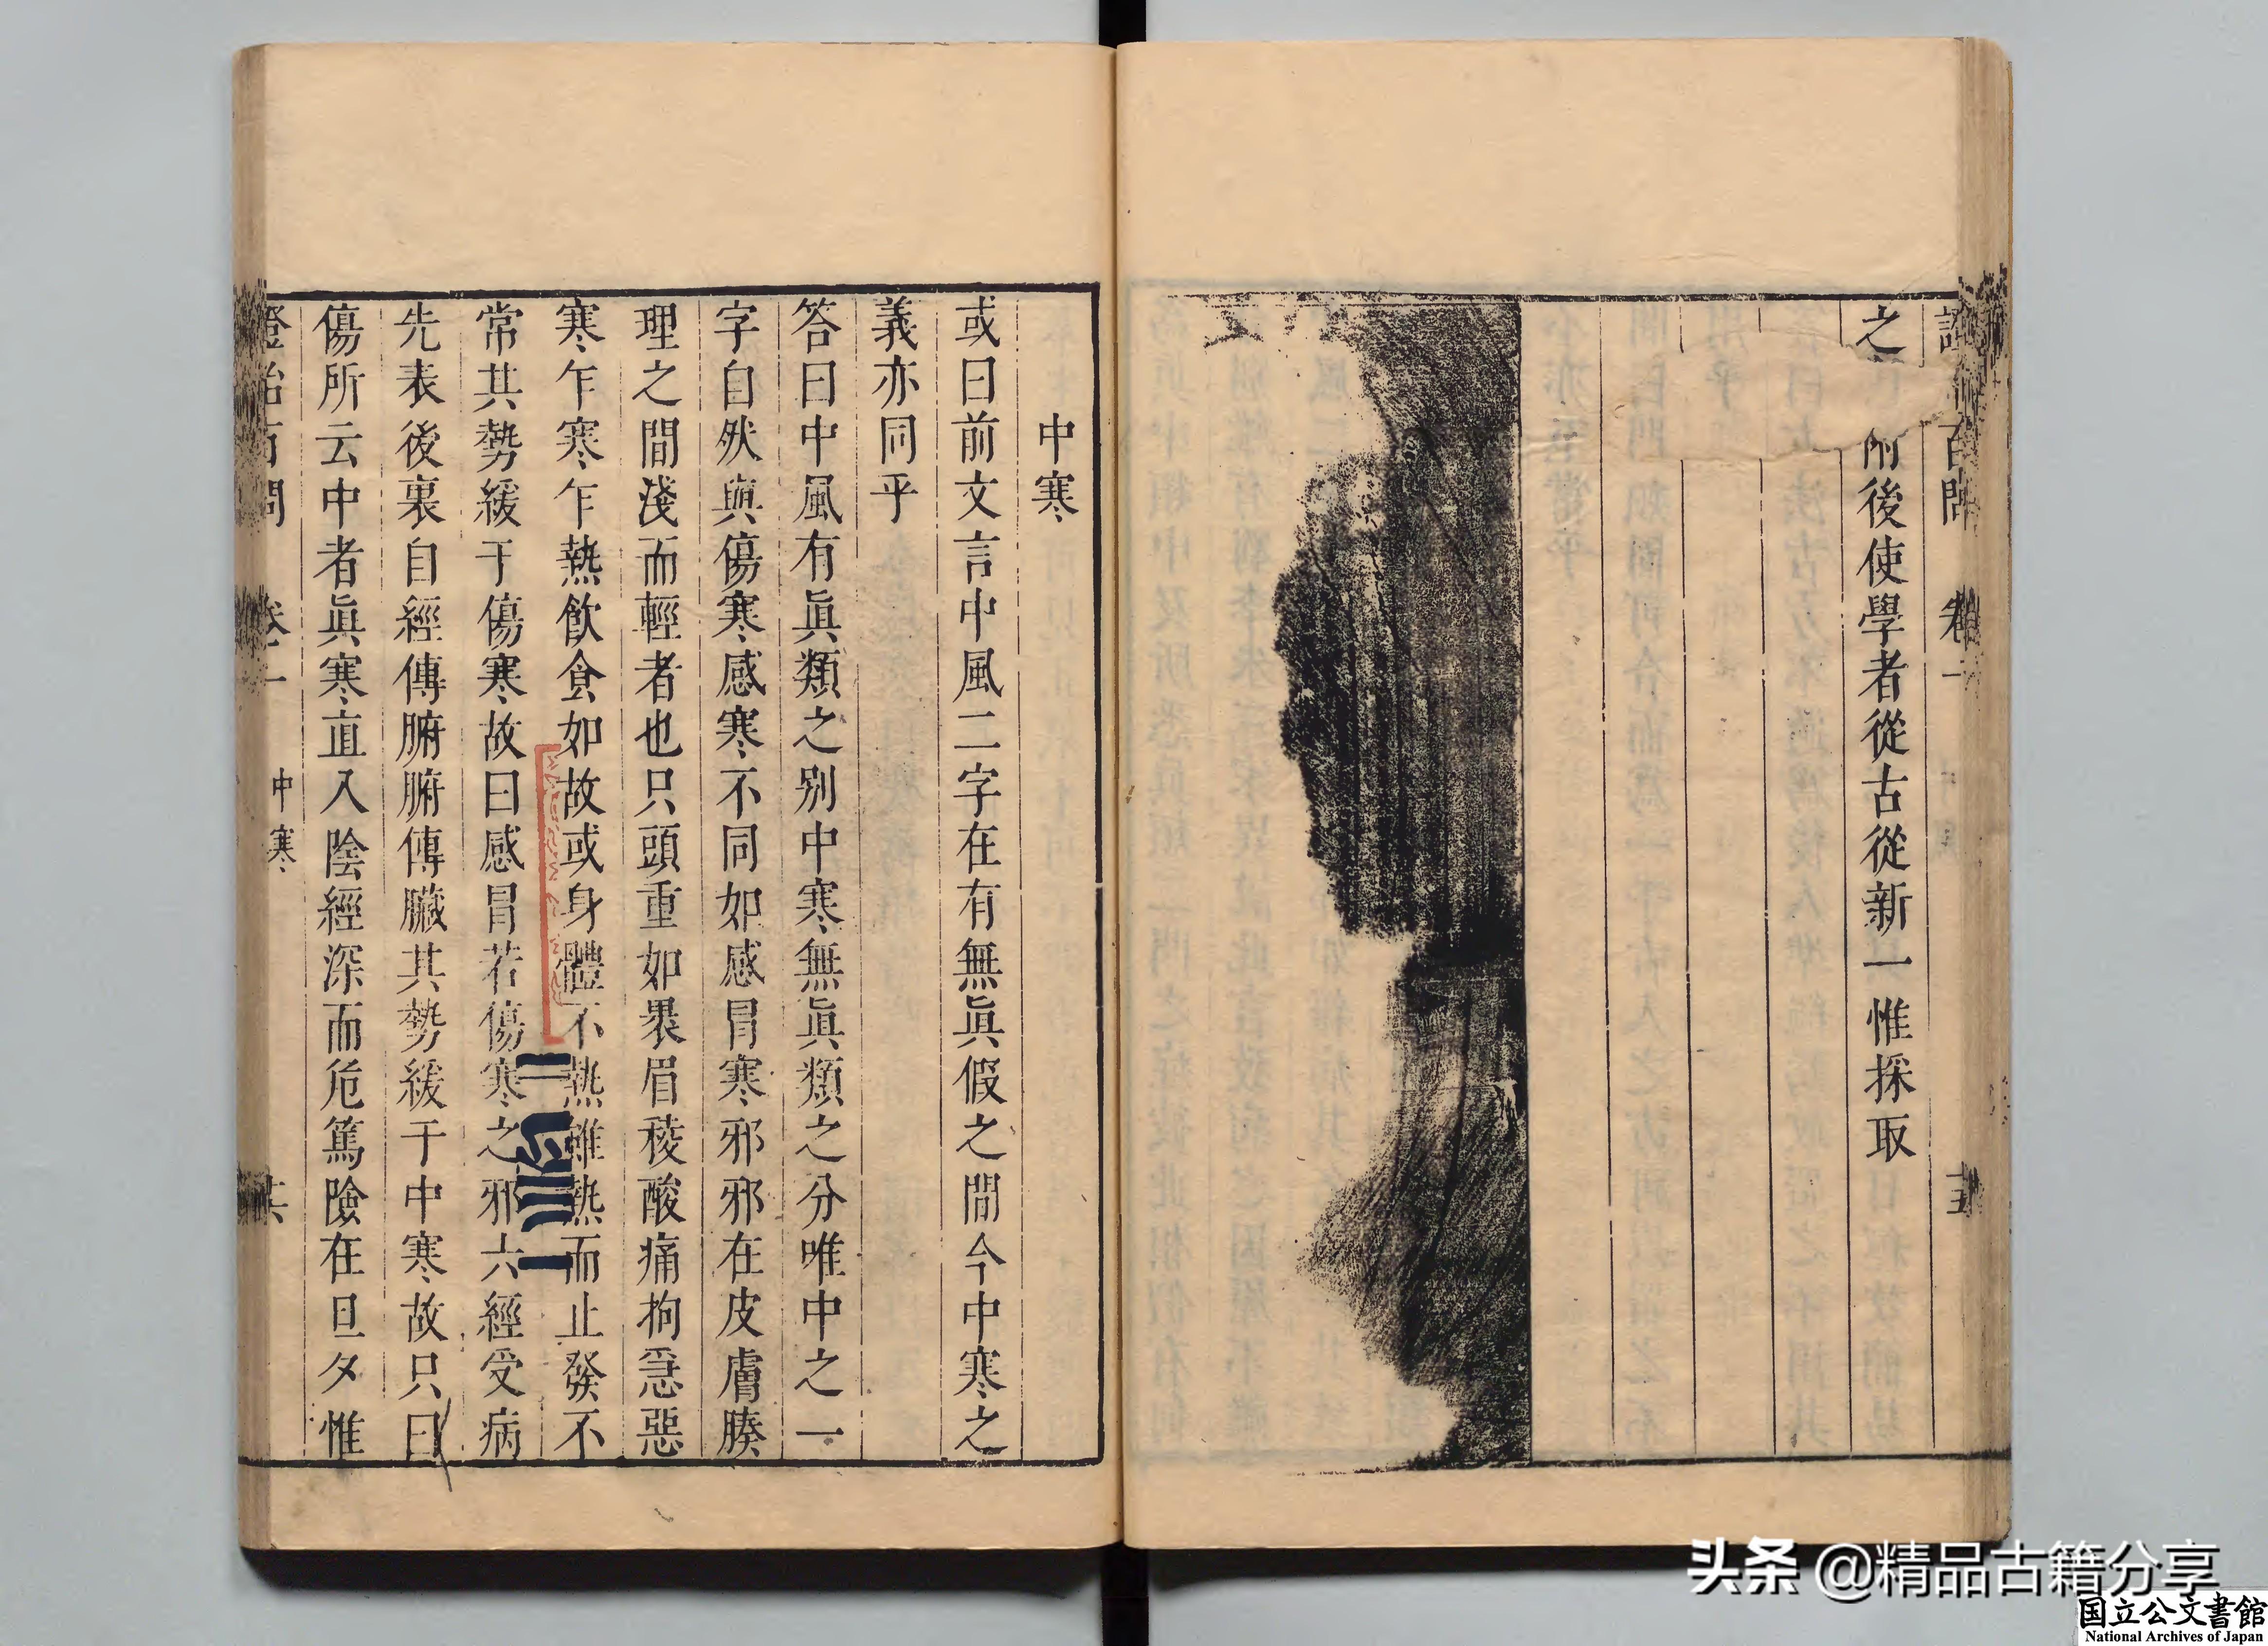 證治百問 卷一 十五
之 附後使學者從古從新一惟採取
中寒
或曰前文言中風二字在有無眞假之間今中寒之
義亦同乎
答曰中風有眞類之别中寒無眞類之分唯中之一
字自然與傷寒感寒不同如感冒寒邪邪在皮膚腠
理之間淺而輕者也只頭重如裹眉稜酸痛拘急惡
寒乍寒乍熱飲食如故或身體不熱雖熱而止發不
常其勢緩于傷寒故曰感冒若傷寒之邪六經受病
先表後裏自經傳腑腑傳臟其勢緩于中寒故只曰
傷所云中者眞寒直入陰經深而危篤險在旦夕惟
證治百問 卷一 中寒 十六
头条 @精品古籍分享
国立公文書館
National Archives of Japan